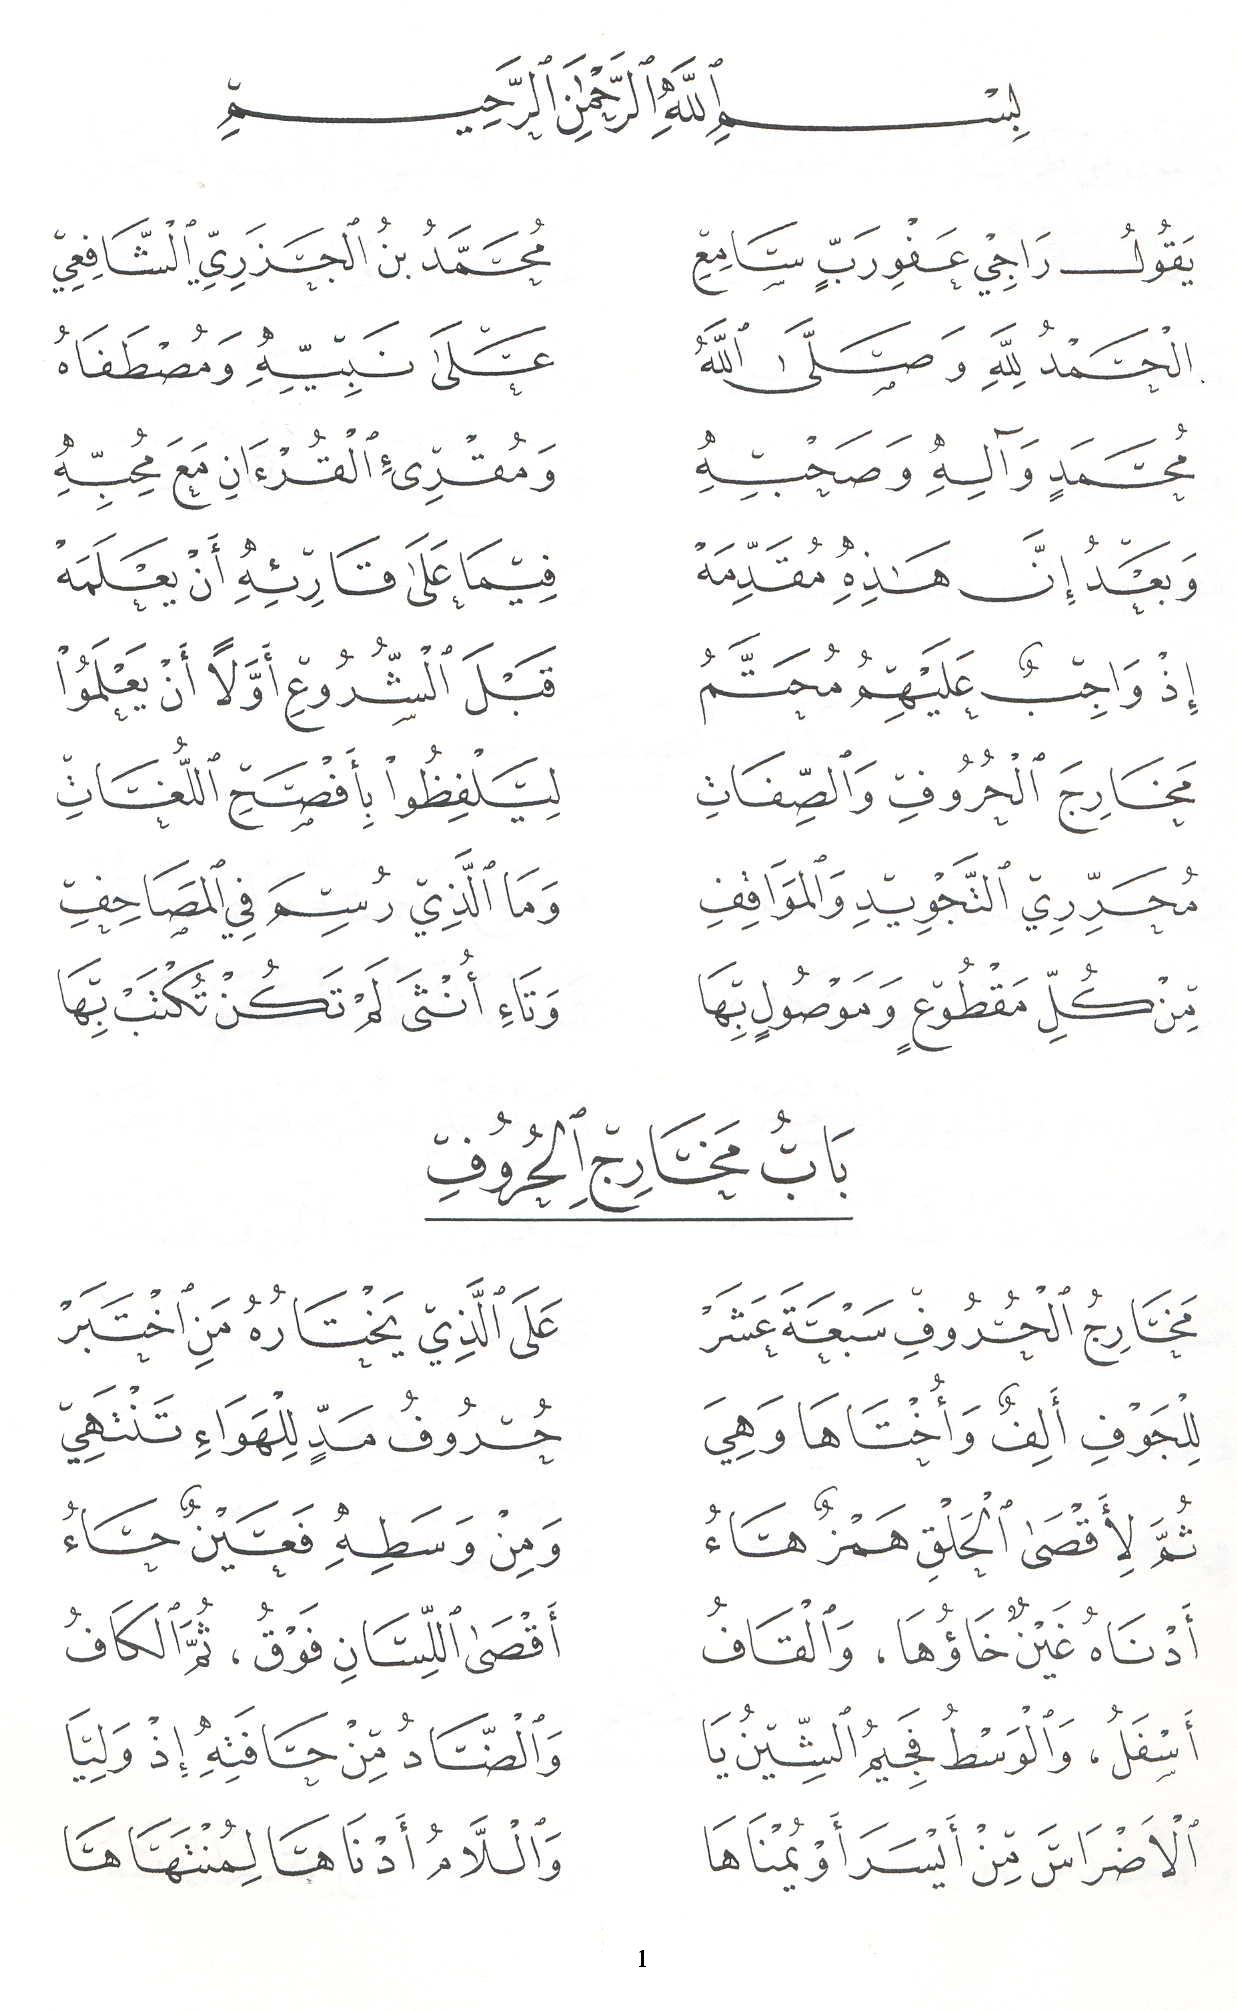 بِسْمِ ٱللَّهِ ٱلرَّحْمَٰنِ ٱلرَّحِيمِ
يَقُولُ رَاجِيْ عَفْوِ رَبٍّ سَامِعِ مُحَمَّدُ بنُ ٱلْجَزَرِيِّ ٱلشَّافِعِيْ
الْحَمْدُ لِلَّهِ وَصَلَّى ٱللَّهُ عَلَىٰ نَبِيِّهِ وَمُصْطَفَاهُ
مُحَمَّدٍ وَآلِهِ وَصَحْبِهِ وَمُقْرِئِ ٱلْقُرْءَانِ مَعَ مُحِبِّهِ
وَبَعْدُ إِنَّ هَٰذِهِ مُقَدِّمَهْ فِيمَا عَلَىٰ قَارِئِهِ أَنْ يَعْلَمَهْ
إِذْ وَاجِبٌ عَلَيْهِمُ مُحَتَّمُ قَبْلَ ٱلشُّرُوعِ أَوَّلًا أَنْ يَعْلَمُواْ
مَخَارِجَ ٱلْحُرُوفِ وَٱلصِّفَاتِ لِيَلْفِظُواْ بِأَفْصَحِ ٱللُّغَاتِ
مُحَرِّرِي ٱلتَّجْوِيدِ وَٱلْمَوَاقِفِ وَمَا ٱلَّذِيْ رُسِمَ فِي ٱلْمَصَاحِفِ
مِنْ كُلِّ مَقْطُوعٍ وَمَوْصُولٍ بِهَا وَتَاءِ أُنْثَى لَمْ تَكُنْ تُكْتَبْ بِهَا
بَابُ مَخَارِجِ ٱلْحُرُوفِ
مَخَارِجُ ٱلْحُرُوفِ سَبْعَةَ عَشَرْ عَلَى ٱلَّذِيْ يَخْتَارُهُ مَنِ ٱخْتَبَرْ
لِلْجَوْفِ أَلِفٌ وَأُخْتَاهَا وَهِيَ حُرُوفُ مَدٍّ لِلْهَوَاءِ تَنْتَهِيْ
ثُمَّ لِأَقْصَى ٱلْحَلْقِ هَمْزٌ هَاءُ وَمِنْ وَسَطِهِ فَعَيْنٌ حَاءُ
أَدْنَاهُ غَيْنٌ خَاؤُهَا، وَٱلْقَافُ أَقْصَى ٱللِّسَانِ فَوْقُ، ثُمَّ ٱلْكَافُ
أَسْفَلُ، وَٱلْوَسْطُ فَجِيمُ ٱلشِّينُ يَا وَٱلضَّادُ مِنْ حَافَتِهِ إِذْ وَلِيَا
ٱلْاَضْرَاسَ مِنْ أَيْسَرَ أَوْ يُمْنَاهَا وَٱللَّامُ أَدْنَاهَا لِمُنْتَهَاهَا
1